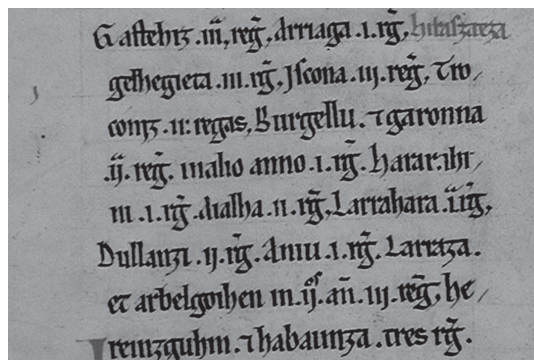 Gastehiz .iii, reg̃, Arriaga .i. rg̃,
gelhegieta .iii. rg̃, Iscona .iii. reg̃, Tro⸝
coniz .ii: regas, Burgellu. ⁊ garonna
.ii. reg̃. in alio anno .i. rg̃. harar.ihi⸝
ni .i. rg̃. aialha .ii. rg̃, Larrahara .i. rg̃,
Dullanzi .ij. rg̃. Aniu .i. rg̃. Larraza.
et arbelgoihen in .ij.os an̄. iii. reg̃, he⸝
reinzguhin. ⁊ habaunza .tres rg̃.